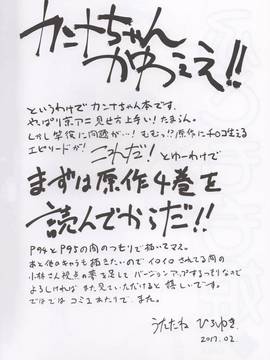 カンナちゃん
かわええ!!
というわけでカンナちゃん本です。
やっぱり京アニ見せ方上手い!たまらん。
しかし竿役に問題が…!むむっ?原作にチロコ生える
エピソードが! これだ! とゆーわけで
まずは原作4巻を
読んでからだ!!
P94とP95の間のつもりで描いてマス。
あと他のキャラも描きたいのでイロイロされてる間の
小林さん視点の夢を足してバージョンアップするつもりなので
よろしければまた見ていただけると嬉しいです。
ではではコミ1あたりで、また。
うたたねひろゆき
2017.02